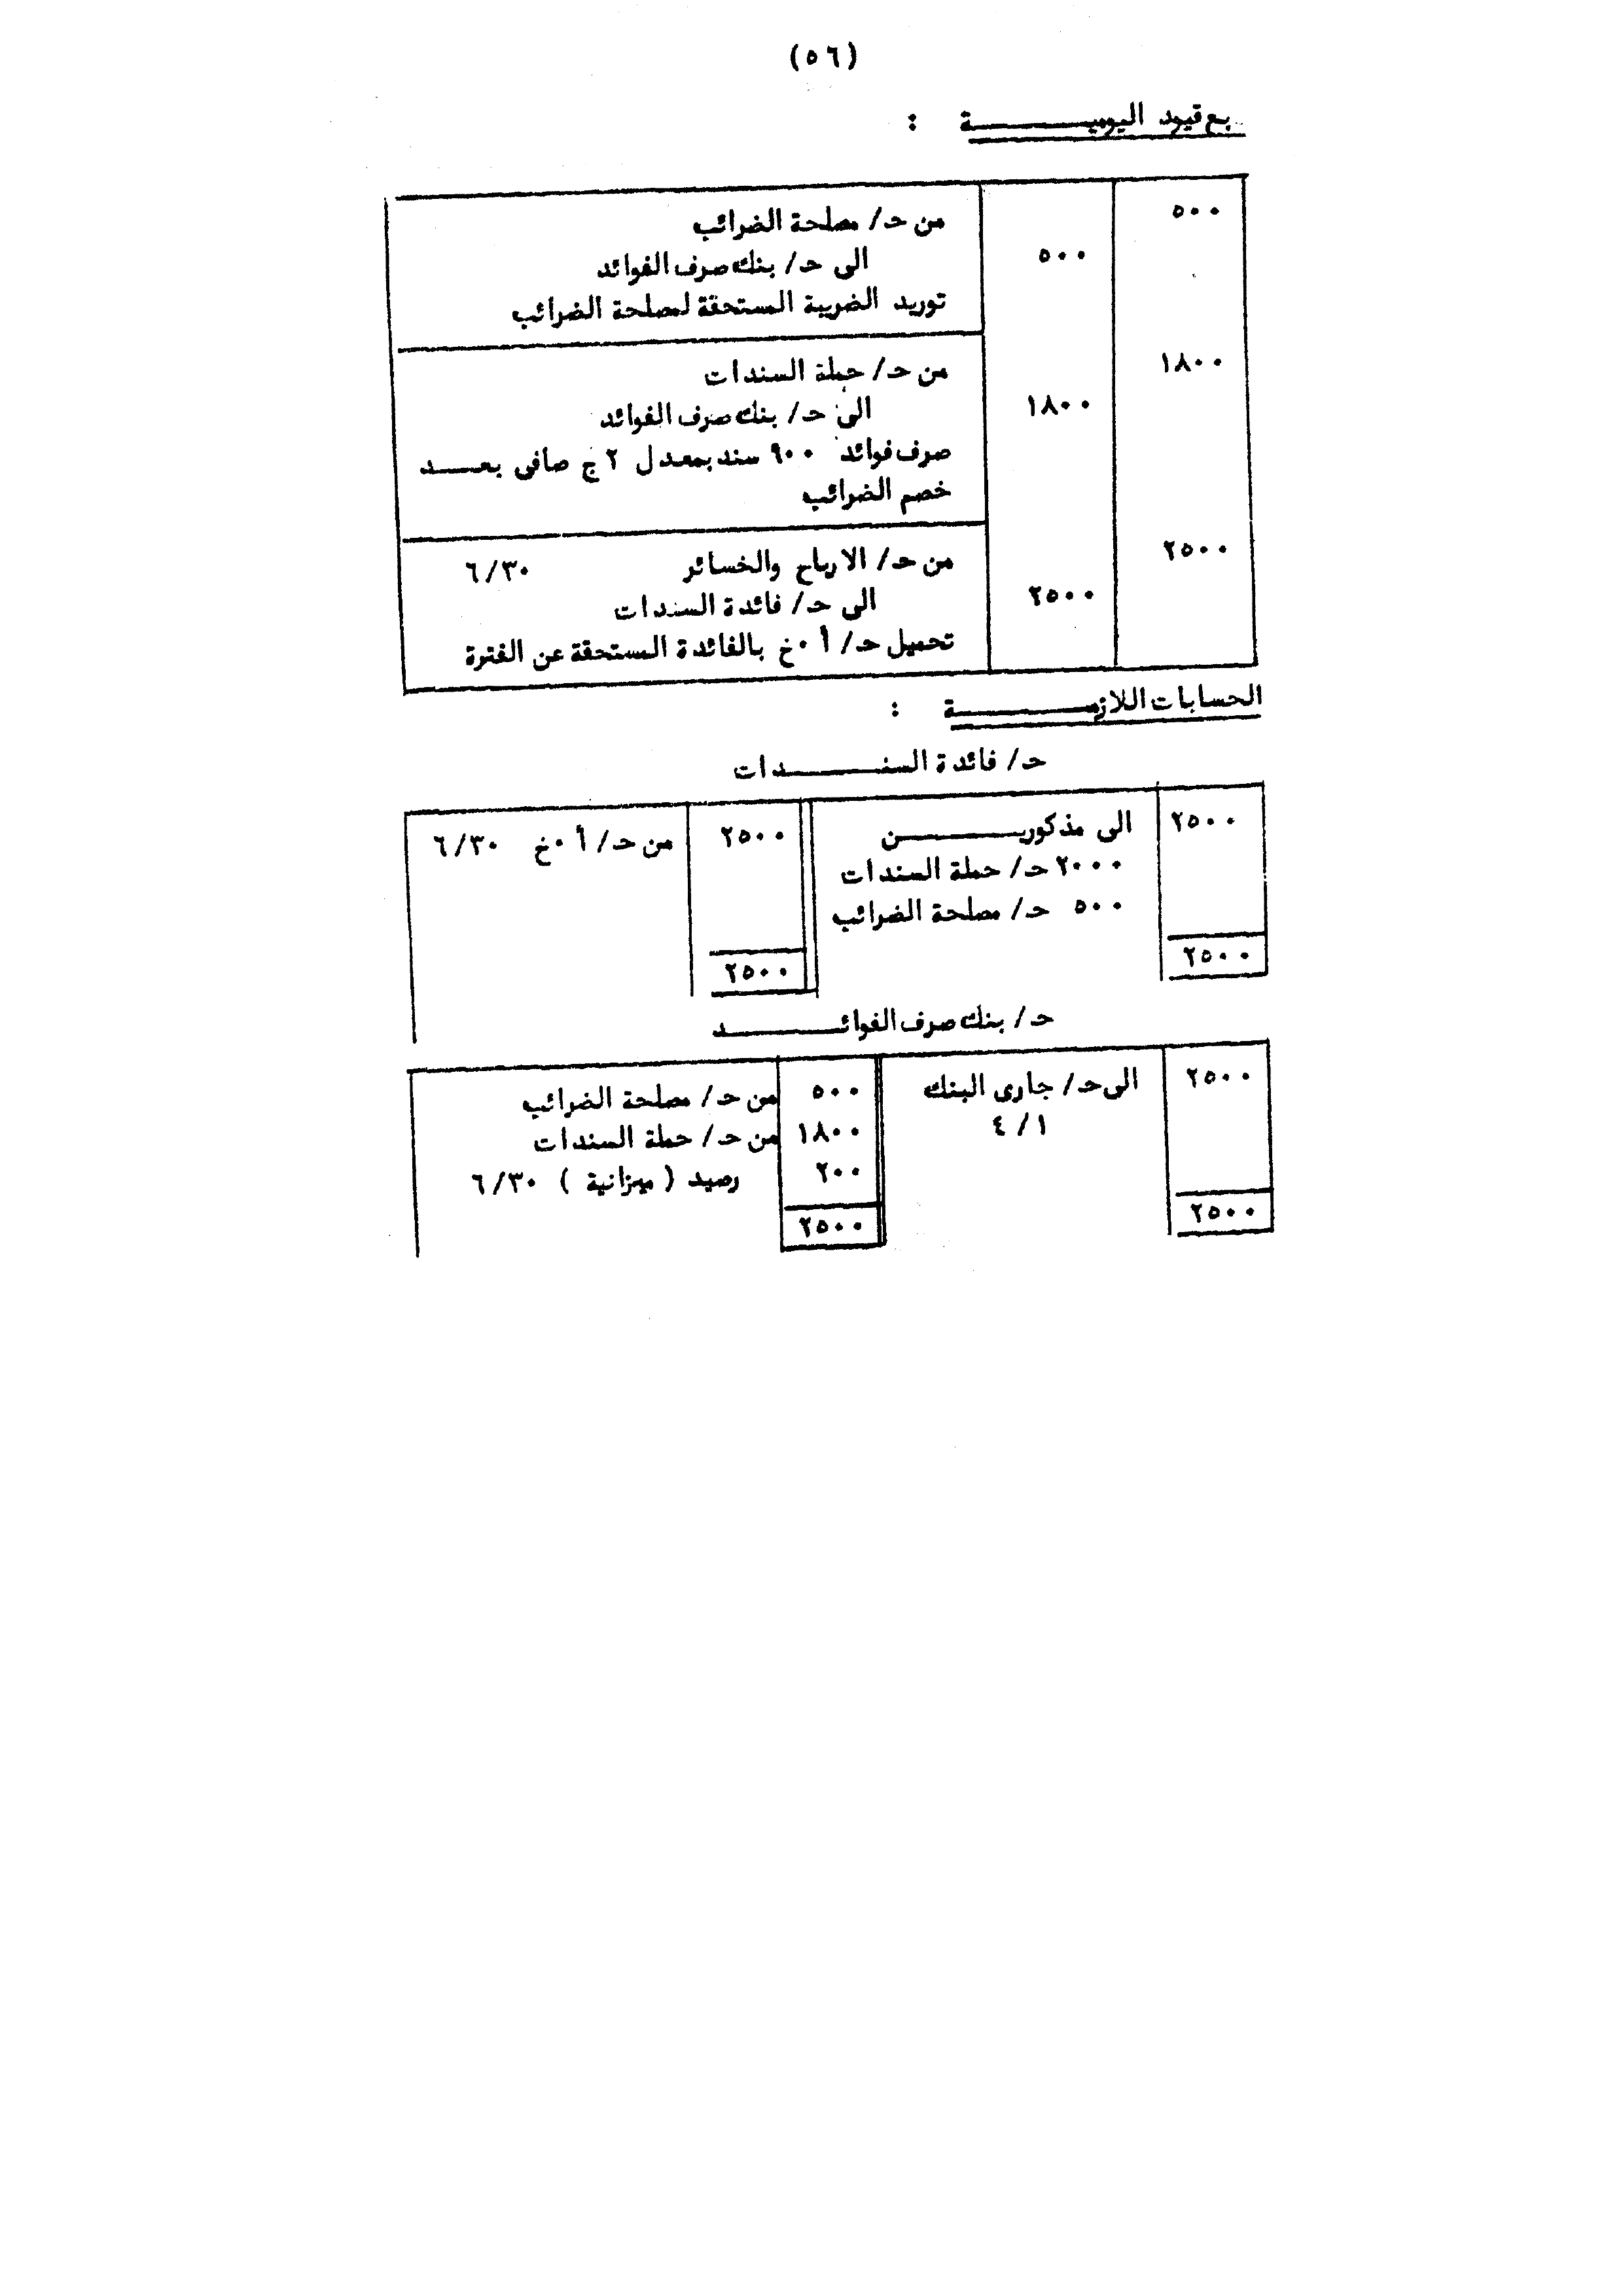 (٥٦)
بع قيود اليوميـــــــــة :
٥٠٠ من حـ/ مصلحة الضرائب
٥٠٠ الى حـ/ بنك صرف الفوائد
توريد الضريبة المستحقة لمصلحة الضرائب
١٨٠٠ من حـ/ حملة السندات
١٨٠٠ الى حـ/ بنك صرف الفوائد
صرف فوائد ٩٠٠ سند بمعدل ٢ ج صافى بعـــــد
خصم الضرائب
٢٥٠٠ من حـ/ الارباح والخسائر ٦/٣٠
٢٥٠٠ الى حـ/ فائدة السندات
تحميل حـ/ أ ٠خ بالفائدة المستحقة عن الفترة
الحسابات اللازمـــــــــــة :
حـ/ فائدة السنـــــــــدات
٢٥٠٠ الى مذكوريـــــــــــن ٢٥٠٠ من حـ/ أ ٠خ ٦/٣٠
٢٠٠٠ حـ/ حملة السندات
٥٠٠ حـ/ مصلحة الضرائب
٢٥٠٠ ٢٥٠٠
حـ/ بنك صرف الفوائـــــــــــد
٢٥٠٠ الى حـ/ جارى البنك ٥٠٠ من حـ/ مصلحة الضرائب
٤/١ ١٨٠٠ من حـ/ حملة السندات
٢٠٠ رصيد ( ميزانية ) ٦/٣٠
٢٥٠٠ ٢٥٠٠